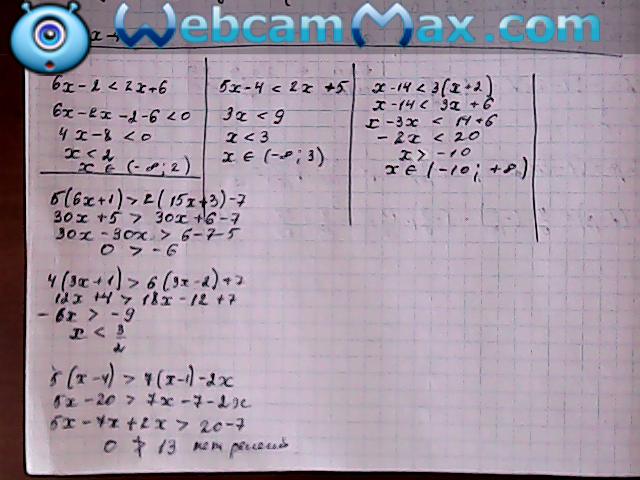 WebcamMax.com
x
6x-2<2x+6
6x-2x-2-6<0
4x-8<0
x<2
x∈(-∞;2)
5x-4<2x+5
3x<9
x<3
x∈(-∞;3)
x-14<3(x+2)
x-14<3x+6
x-3x<14+6
-2x<20
x>-10
x∈(-10;+∞)
5(6x+1)>2(15x+3)-7
30x+5>30x+6-7
30x-30x>6-7-5
0>-6
4(3x+1)>6(3x-2)+7
12x+4>18x-12+7
-6x>-9
x<3/2
5(x-4)>7(x-1)-2x
5x-20>7x-7-2x
5x-7x+2x>20-7
0≯13 нет решений